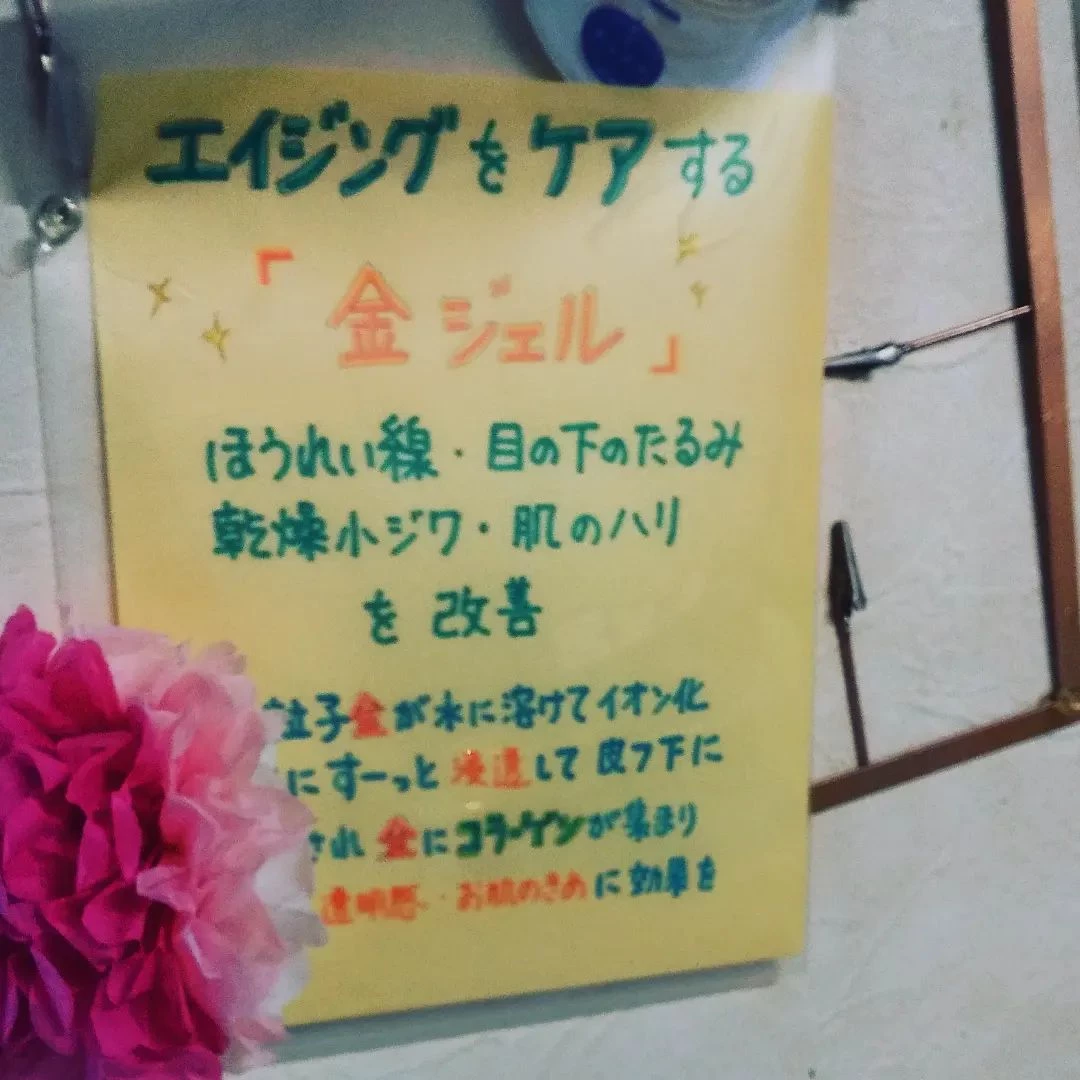 エイジングをケアする
「金ジェル」
ほうれい線・目の下のたるみ
乾燥小ジワ・肌のハリ
を改善
粒子金が水に溶けてイオン化
にすーっと浸透して皮フ下に
され金にコラーゲンが集まり
透明感・お肌のきめに効果を